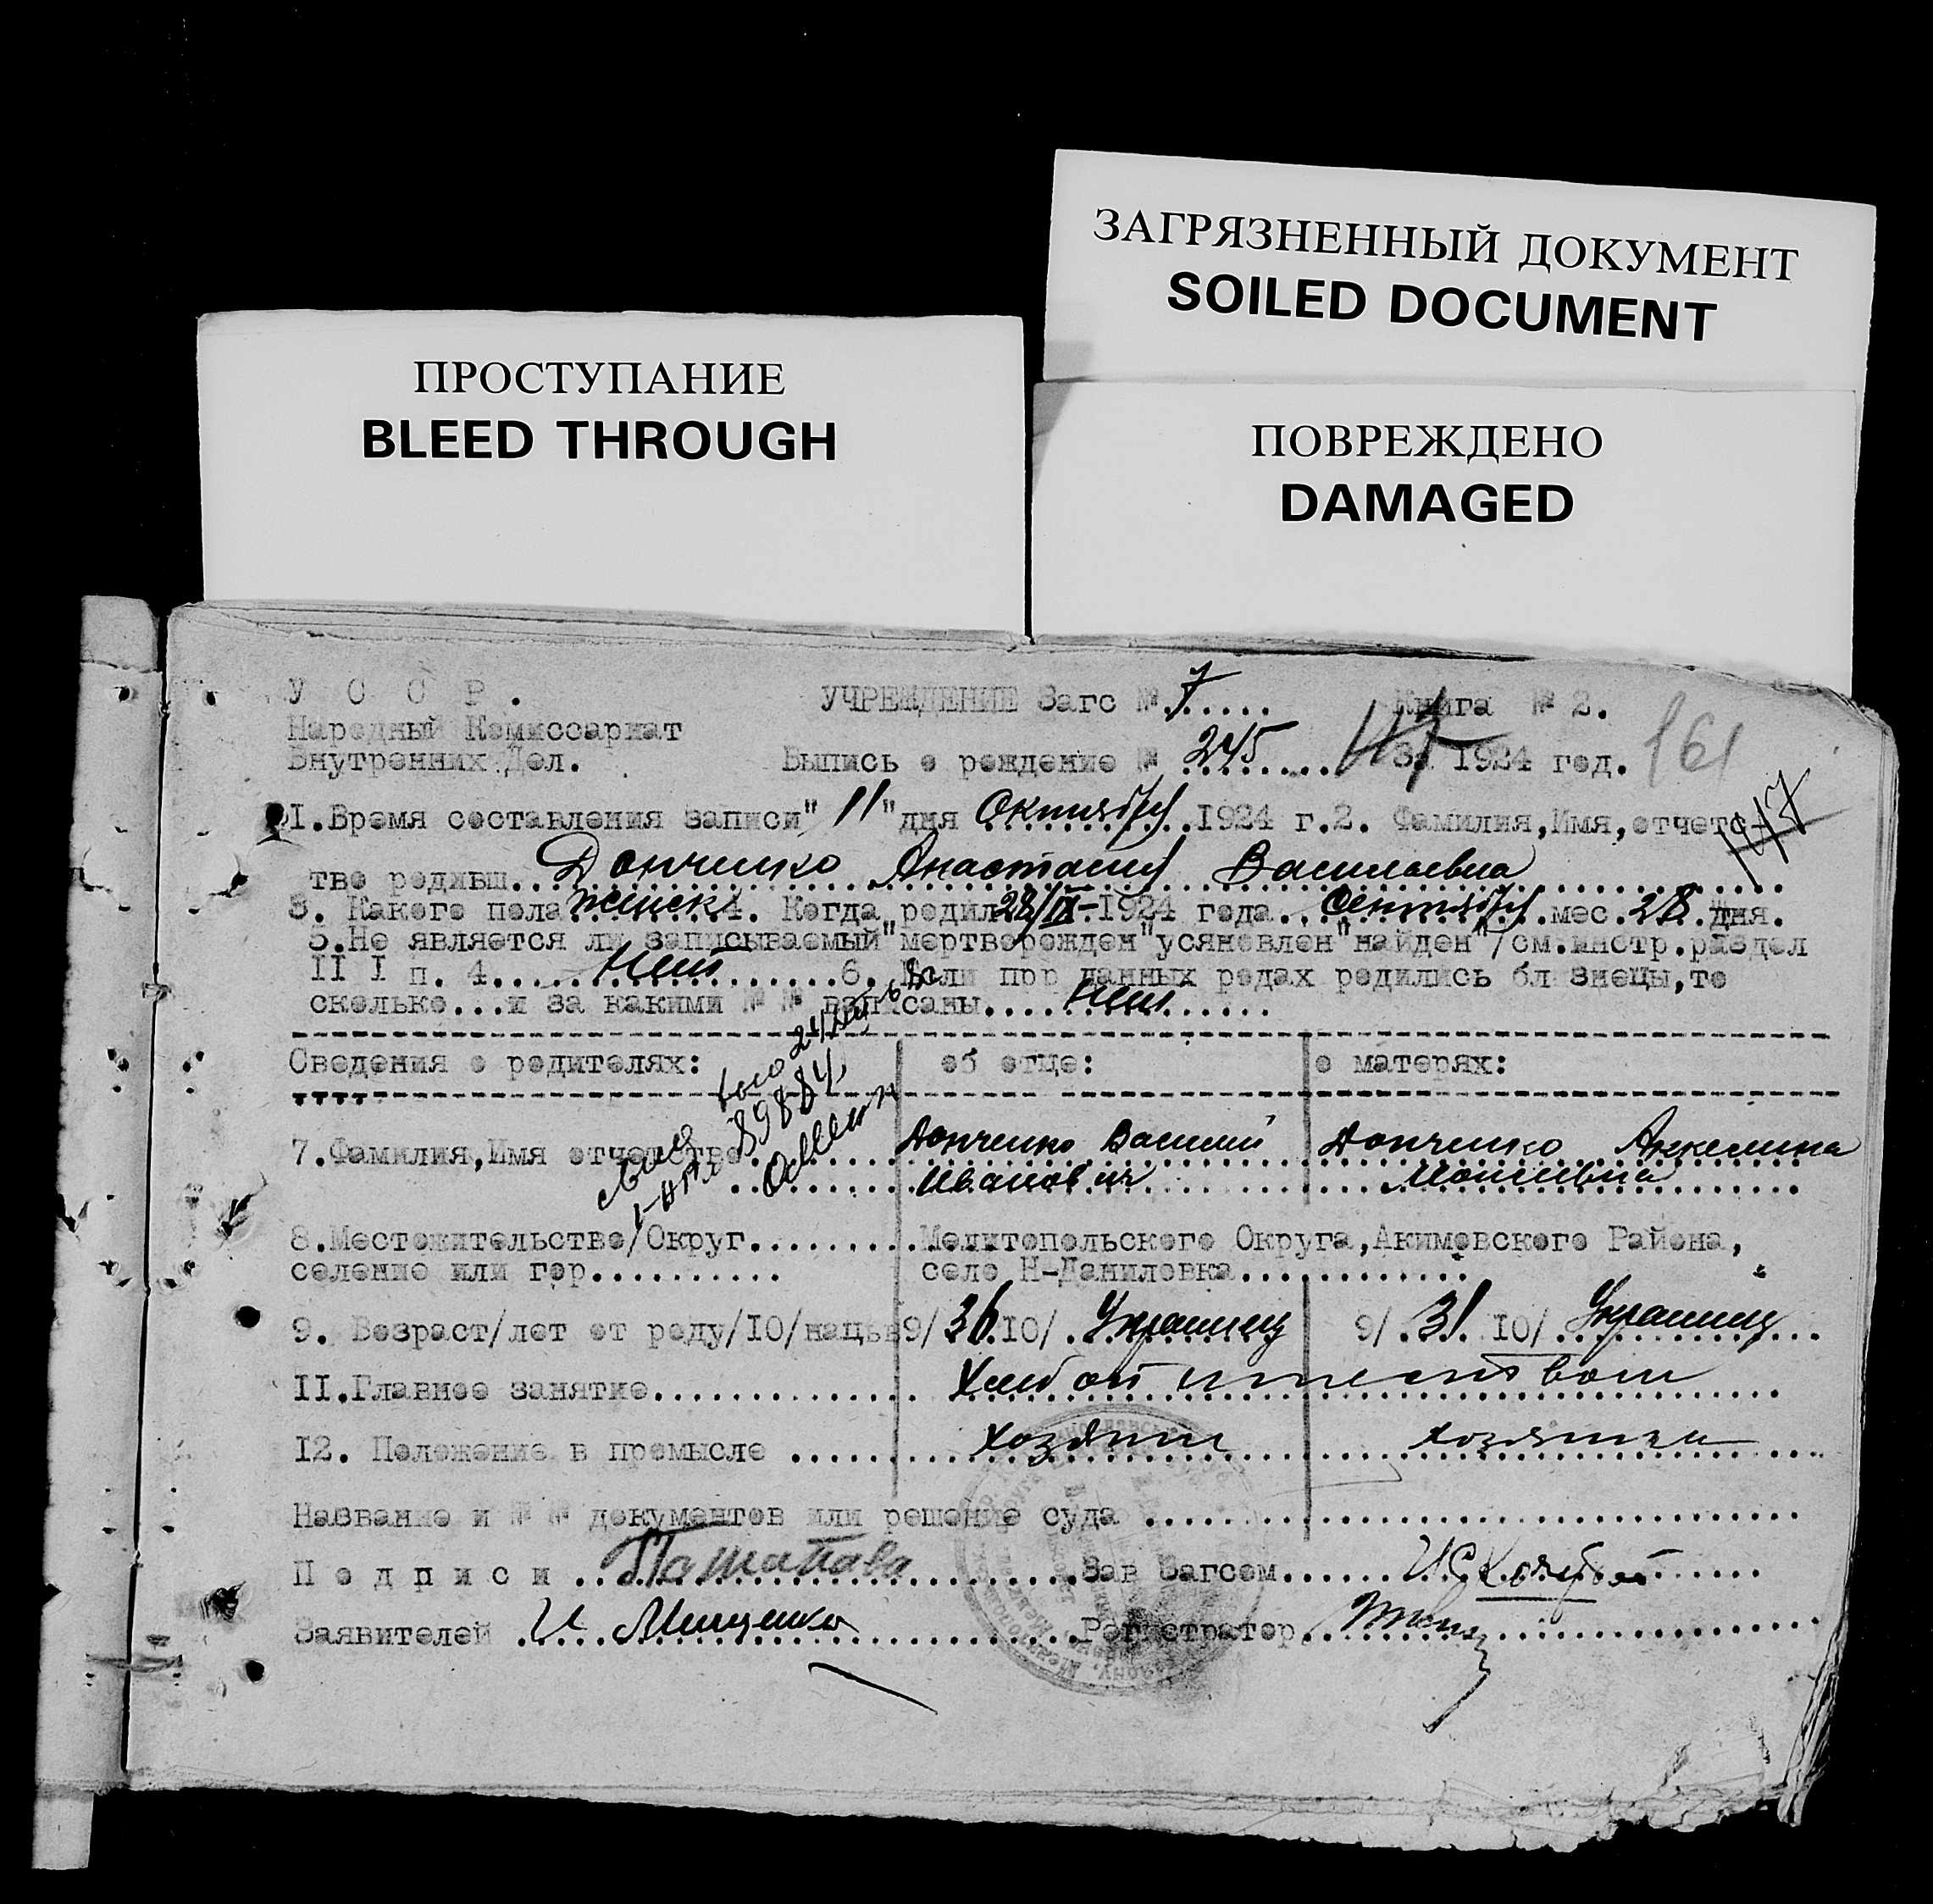 ЗАГРЯЗНЕННЫЙ ДОКУМЕНТ
SOILED DOCUMENT
ПРОСТУПАНИЕ
BLEED THROUGH
ПОВРЕЖДЕНО
DAMAGED
У С С Р . УЧРЕЖДЕНИЕ Загс № 7..... Книга № 2.
Народный Комиссариат
Внутренних Дел. Выпись о рождение № 245........ 117 За 1924 год. 161
1.Время составления записи" 11 "дня Октября.1924 г.2. Фамилия,Имя,отчест-
147
тво родивш...Донченко Анастасия Васильевна
3. Какого пола женск 4. Когда родил 28/IX-1924 года..Сентября.мес.28.дня.
5.Не является ли записываемый"мертворожден"усяновлен"найден"/см.инстр.раздел
II I п. 4....Нет........6. Если прр данных родах родились бл знецы,то
сколько...и за какими № № записаны....Нет......
Сведения о родителях: об отце: о матерях:
7.Фамилия,Имя отчество Донченко Василий Донченко Анжелина
Иванович Моисеевна
8.Местожительство/Округ.........Мелитопольского Округа,Акимовского Района,
селение или гор.......... село Н-Даниловка............
9. Возраст/лет от роду/10/нацьв 9/36.10/.Украинец 9/.31. 10/.Украинц...
11.Главное занятие............... Хлебопашеством
12. Положение в промысле ........ хозяин хозяйка
Название и № № документов или решение суда ...............................
П о д п и с и ..Поташова.........Зав Загсом......
Заявителей ..И. Мищенко.........Регистратор...